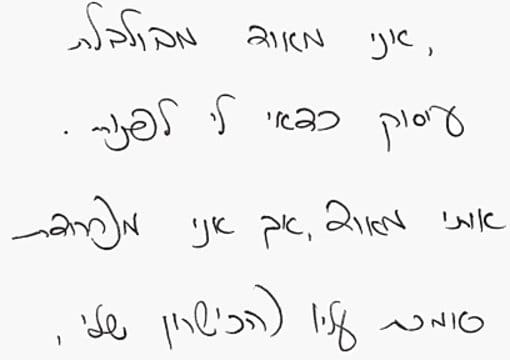 ,אני מאוד מבולבלת
עיסוק כדאי לי לפנות .
אותי מאוד, אך אני מפחדת
סומכת עליו (הכישרון שלי ,